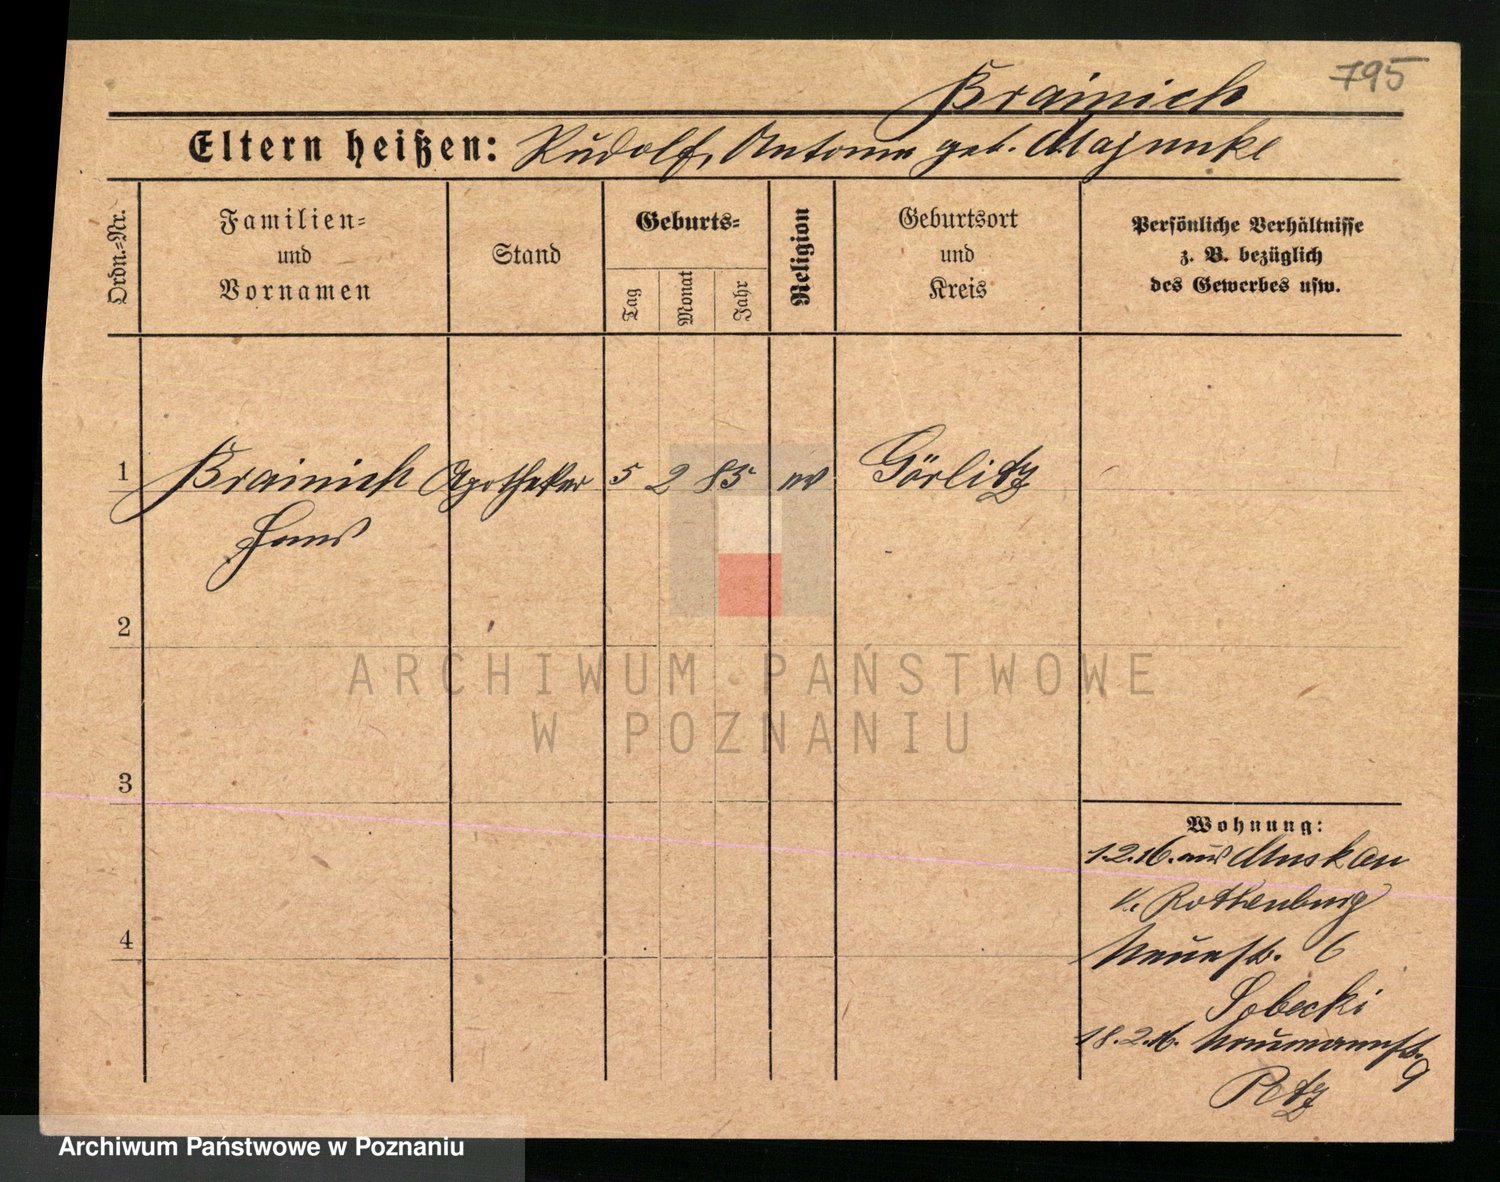 795
Brainich
Eltern heißen: Rudolf, Antonie geb. Majunke
Ordn.=Nr.
Familien=
und
Vornamen
Stand
Geburts=
Tag
Monat
Jahr
Religion
Geburtsort
und
Kreis
Persönliche Verhältnisse
z. B. bezüglich
des Gewerbes usw.
1 Brainich Apotheker 5 2 85 ev Görlitz
Hans
2
ARCHIWUM PAŃSTWOWE
W POZNANIU
3
Wohnung:
1.2.16. aus Muskau
Rothenburg
4
Neuestr. 6
Sobecki
18.2.16. Naumannstr.
9
Archiwum Państwowe w Poznaniu